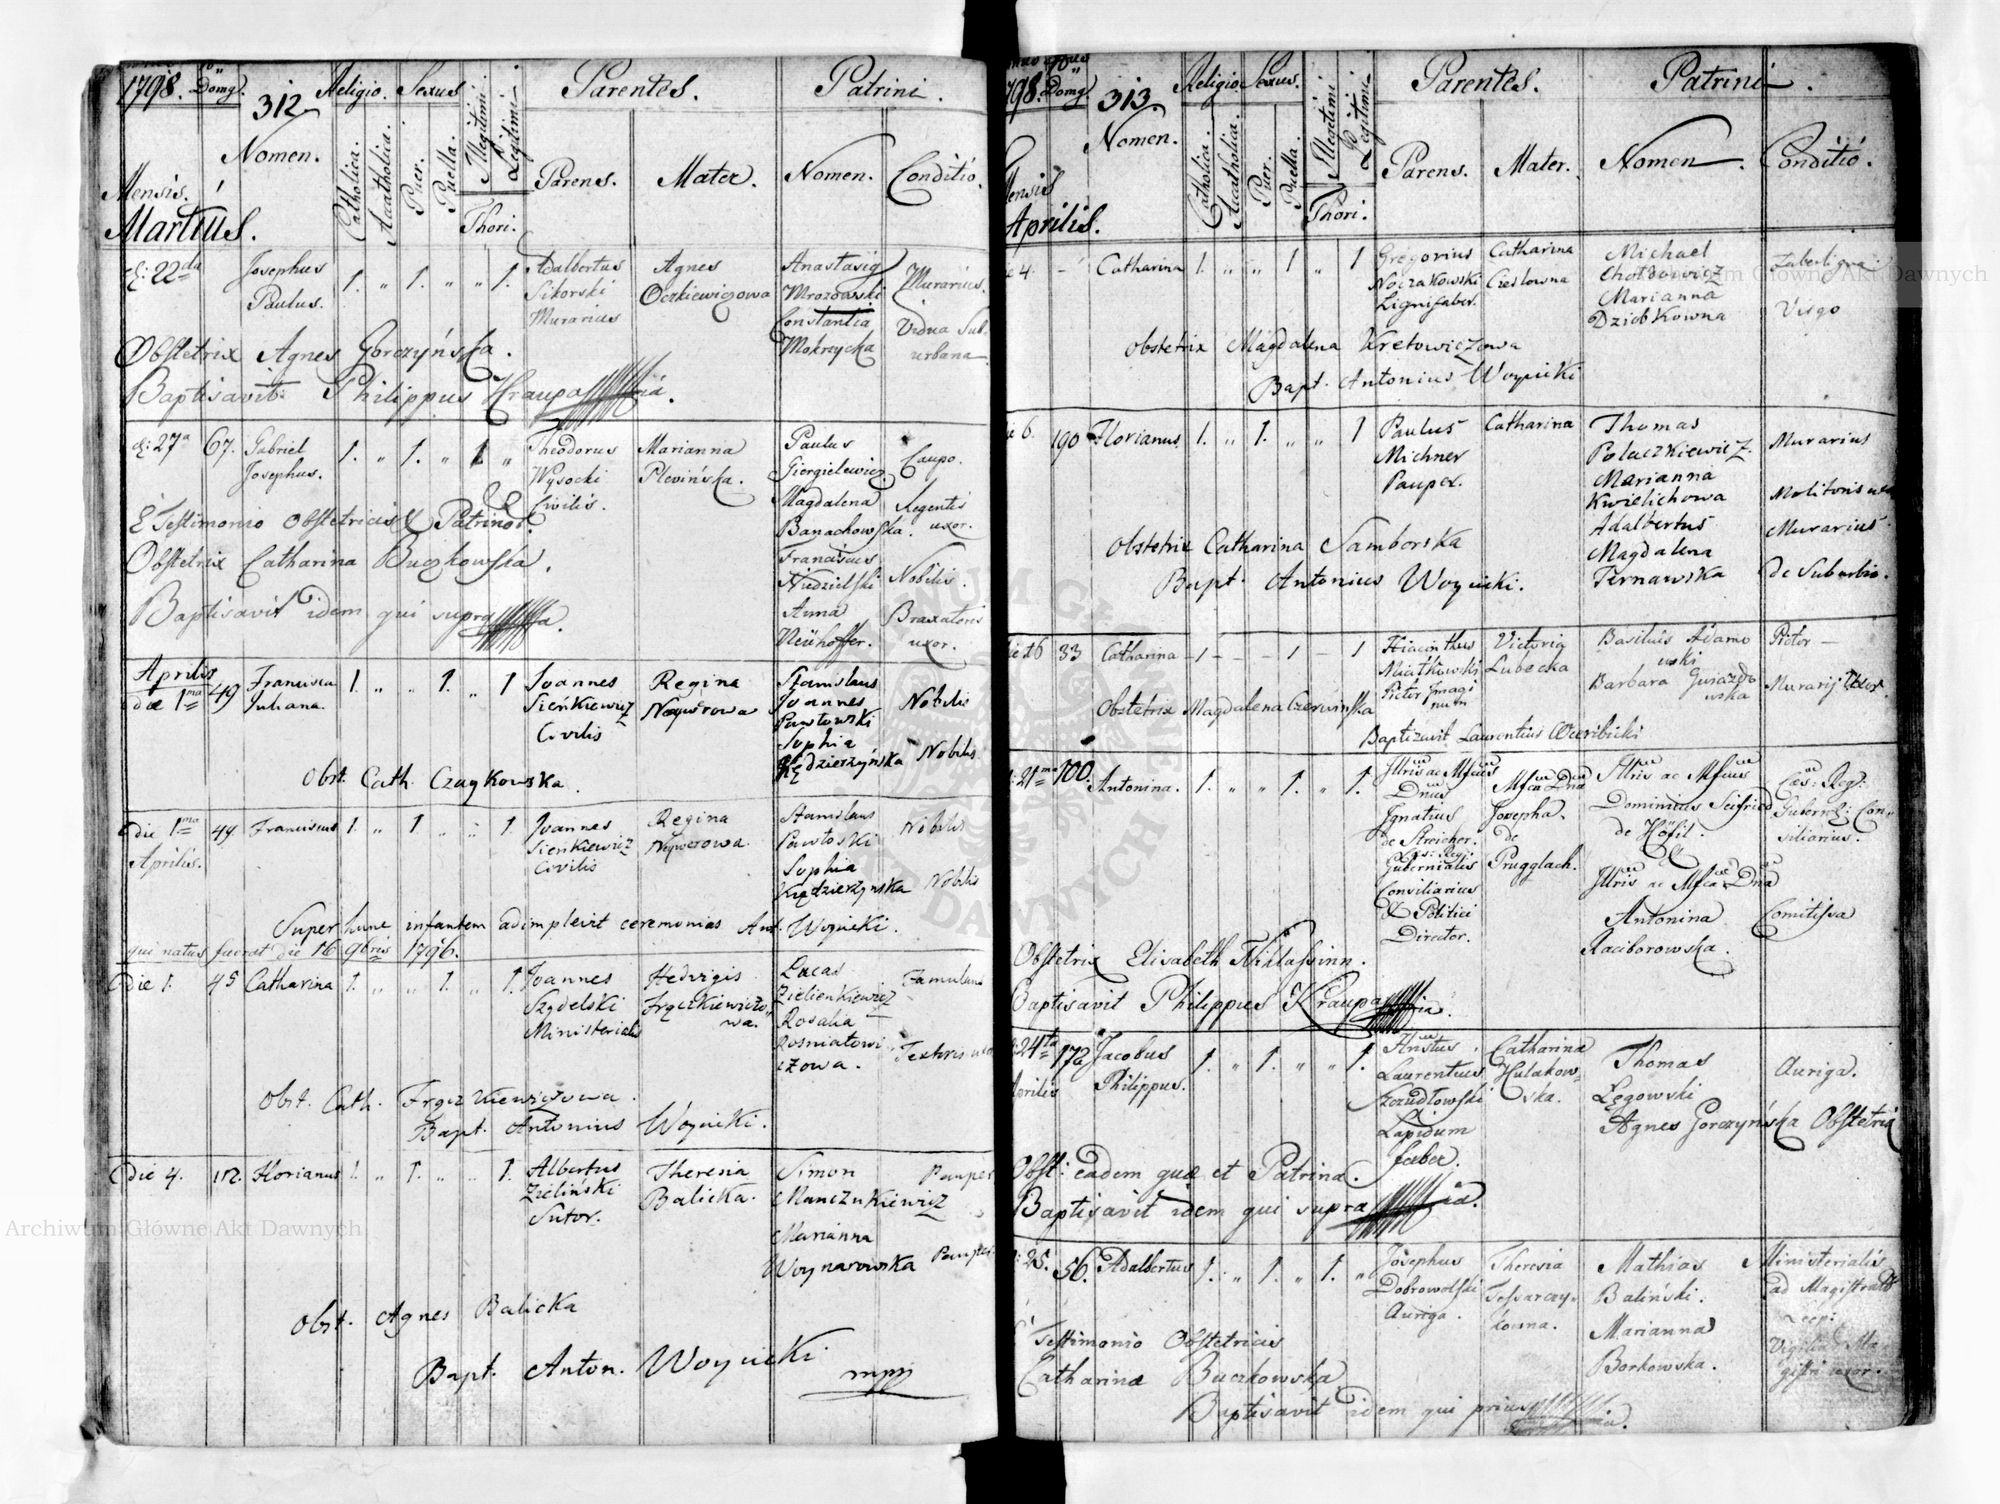 1798. Domg. 312. Religio. Sexus Parentes. Patrini.
Nomen. Catholica. Acatholica. Puer. Puella. Illegitimi Legitimi. Parens. Mater. Nomen. Conditio.
Mensis. Thori.
Martius.
d: 22da Josephus 1. " 1. " " 1. Adalbertus Agnes Murarius.
Paulus. Sikorski Oczkiewiczowa Mrozowski
Murarius Constantia Vidua Sub
Mokrzycka urbana
Obstetrix Agnes Gorczyńska.
Baptisavit Philippus Kraupa
d: 27a 67. Gabriel 1. " 1. " 1 " Theodorus Marianna Paulus Caupo.
Josephus. Wysocki Plevińska. Giergielewicz
Civilis. Magdalena Regentis
E Testimonio Obstetricis & Patrinor. Banachowska. uxor.
Obstetrix Catharina Buczkowska. Franciscus
Niedzielski Nobilis.
Baptisavit idem qui supra Anna Braxatoris
Neühoffer. uxor.
Aprilis
die 1ma 49 Francisca 1. " " 1. " 1 Joannes Regina Stanislaus
Juliana Sieńkiewicz Joannes Nobilis
Civilis Pawłowski
Sophia
Kędzierzyńska Nobilis
Obst. Cath. Czaykowska.
Die 1ma 49. Franciscus 1. " 1 " " 1. Joannes Regina Stanislaus Nobilis
Aprilis. Sienkiewicz Pawłoski
Civilis Sophia
Kędzierzynska Nobilis
Super hunc infantem adimplevit ceremonias Ant. Woynicki.
qui natus fuerat die 16 9bris 1796.
Die 1. 45 Catharina 1. " " 1 " 1. Joannes Hedvigis Lucas Famulus
Szydelski Zielienkiewicz
Ministerialis Rosalia
Rosniatowi
czowa. Textoris uxor
Obst. Cath. Frączkiewiczowa.
Bapt. Antonius Woynicki.
Die 4. 112. Florianus 1. " 1. " " 1. Albertus Theresia Simon Pauper
Zieliński Balicka. Manczukiewicz
Sutor. Marianna
Woynarowska Pauper
Obst. Agnes Balicka
Bapt. Anton. Woynicki
mpp
1798. Domg. 313. Religio Sexus. Parentes. Patrini.
Nomen. Catholica. Acatholica. Puer. Puella. Illegitimi Legitimi. Parens. Mater. Nomen. Conditio.
Mensis Thori.
Aprilis.
die 4. - Catharina 1. " " 1 " 1 Gregorius Catharina Michael
Noczakowski Cieslowna Chołdowicz
Lignifaber. Marianna
Dziobkowna Virgo
Obstetrix Magdalena Kretowiczowa
Bapt. Antonius Woynicki
die 6. 190 Florianus 1. " 1. " " 1 Paulus Catharina Thomas
Michner Polaczkiewicz. Murarius
Pauper. Marianna
Kwielichowa Molitoris uxor
Adalbertus Murarius
Obstetrix Catharina Samborska Magdalena
Bapt. Antonius Woynicki. Ternawska de Suburbio.
Die 16 33 Catharina - 1 - - - 1 - 1 Hiacinthus Victoria Basilius Adamo Pictor -
Lubecka wski
Pictor Imagi Barbara Gwiazdo Murarij Uxor.
num wska
Obstetrix Magdalena Czerwińska
Baptizavit Laurentius
d: 21ma 100. Antonina. 1. " " 1. " 1. Illris ac Mfcus Mfca Dna Illris ac Mfcus Caes: Reg:
Dnus Josepha. Dominus Seifried Gubern: Con-
Ignatius de de Höfil. siliarius.
de Streicher. Prugglach. &
Caes: Reg: Illris ac Mfca Dna
Gubernialis Antonina Comitissa
Consiliarius Raciborowska.
& Politiei
Director.
Obstetrix Elisabeth Niklassinn.
Baptisavit Philippus Kraupa
d: 24ta 172 Jacobus 1. " 1. " " 1. Catharina Thomas Auriga.
Aprilis Philippus. Laurentius Hulakow- Łęgowski
Szczudłowski ska. Agnes Gorczyńska Obstetrix
Lapidum
faber.
Obst: eadem quae et Patrina.
Baptisavit idem qui supra
d: 25. 56. Adalbertus 1. " 1. " 1. " Josephus Theresia Mathias Ministerialis
Dobrowolski Tessarczy- Baliński. ad Magistratum
Auriga. kowna. Marianna
E Testimonio Obstetricis Borkowska.
Catharinae Buczkowska
Baptisavit idem qui prius
Archiwum Główne Akt Dawnych
Archiwum Główne Akt Dawnych
ARCHIWUM GŁÓWNE AKT DAWNYCH